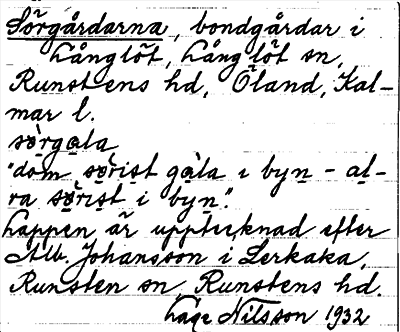 Sörgårdarna, bondgårdar i
Långlöt, Långlöt sn,
Runstens hd, Öland, Kal-
mar l.
sö̀rgala
"dom sö̀rist gàla i byn - al-
ra sö̀rist i byn".
Lappen är upptecknad efter
Alb. Johansson i Lerkaka,
Runsten sn, Runstens hd.
Låge Nilsson 1932